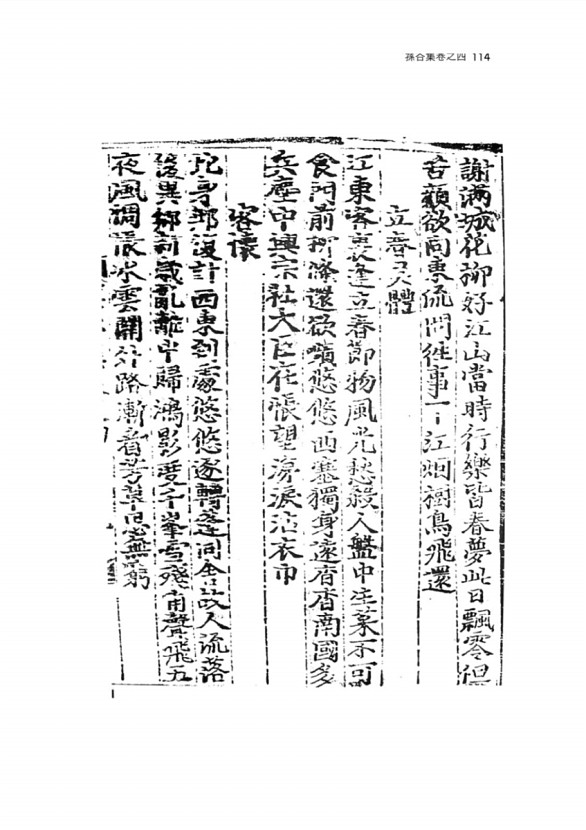 孫合集卷之四 114
謝滿城花柳好江山當時行樂皆春夢此日飄零但
苦顏欲向東流問往事一江烟樹鳥飛還
立春
江東客裏逢立春節物風光愁殺人盤中生菜不可
食門前柳條還欲嚬悠悠西塞獨身遠杳杳南國多
兵塵中興宗社大臣在悵望滂淚沾衣巾
客懷
身都沒計西東到處悠悠逐轉蓬同舍故人流落
後異鄉新歲亂離中歸鴻影度千峯雪殘角聲飛五
夜風惆悵水雲關外路漸看芳草思無窮